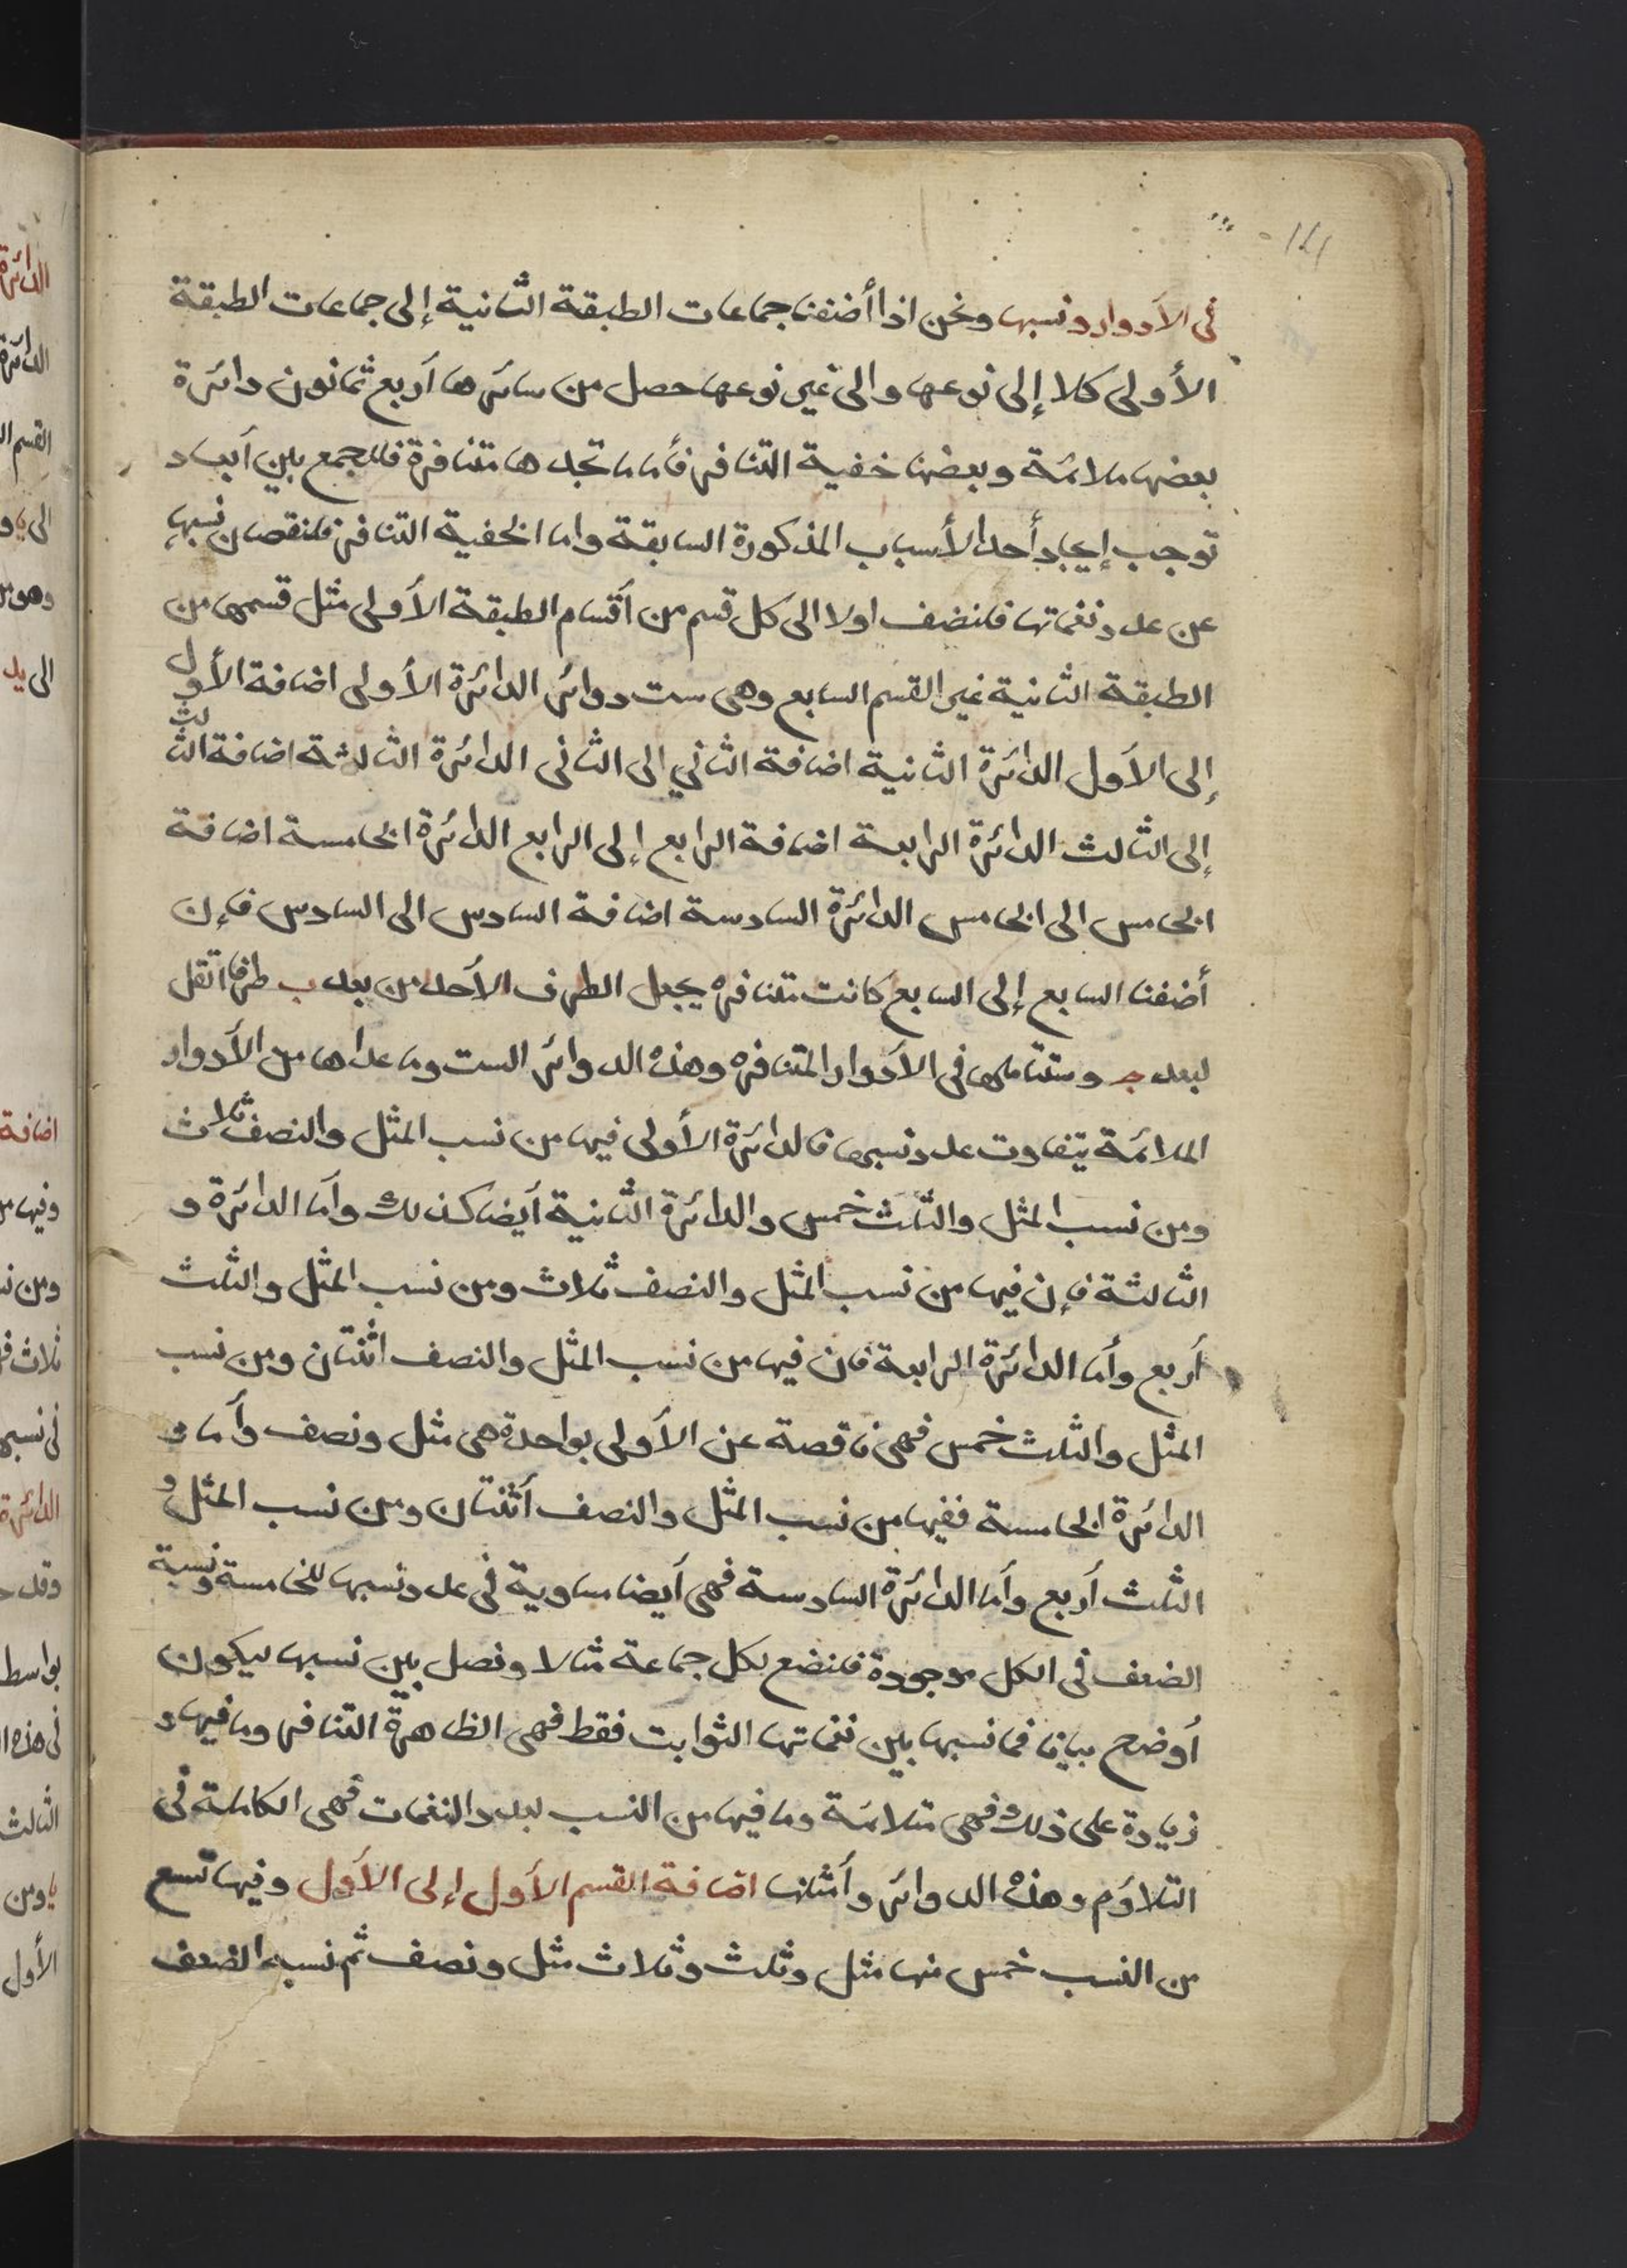 في الأدوار ونسبها ونحن اذا أضفنا جماعات الطبقة الثانية إلى جماعات الطبقة
الأولى كلا إلى نوعها والى غير نوعها حصل من سائرها أربع ثمانون دائرة
بعضها ملائمة وبعضها خفية التنافر فأما ما تجدها متنافرة فللجمع بين أبعاد
توجب إيجاد أحد الأسباب المذكورة السابقة واما الخفية التنافر فلنقصان نسبها
عن عدد نغماتها فلنضف اولا الى كل قسم من أقسام الطبقة الأولى مثل قسمها من
الطبقة الثانية غير القسم السابع وهي ست دوائر الدائرة الأولى اضافة الأول
إلى الأول الدائرة الثانية اضافة الثاني الى الثاني الدائرة الثالثة اضافة الثالث
إلى الثالث الدائرة الرابعة اضافة الرابع إلى الرابع الدائرة الخامسة اضافة
الخامس الى الخامس الدائرة السادسة اضافة السادس الى السادس فإن
أضفنا السابع إلى السابع كانت متنافره يجعل الطرف الأحد من بعد ب طرفا اثقل
لبعد ج وستتأملها في الأدوار المتنافره وهذه الدوائر الست وما عداها من الأدوار
الملائمة يتفاوت عدد نسبها فالدائرة الأولى فيها من نسب المثل والنصف ثلاث
ومن نسب المثل والثلث خمس والدائرة الثانية أيضا كذلك وأما الدائرة و
الثالثة فإن فيها من نسب المثل والنصف ثلاث ومن نسب المثل والثلث
أربع وأما الدائرة الرابعة فان فيها من نسب المثل والنصف اثنتان ومن نسب
المثل والثلث خمس فهي ناقصة عن الأولى بواحدة هي مثل ونصف وأما و
الدائرة الخامسة ففيها من نسب المثل والنصف أثنتان ومن نسب المثل و
الثلث أربع وأما الدائرة السادسة فهي أيضا مساوية في عدد نسبها للخامسة ونسبة
الضعف في الكل موجودة فلنضع لكل جماعة مثالا ونصل بين نسبها ليكون
أوضح بيانا فما نسبها بين نغماتها الثوابت فقط فهي الظاهرة التنافر وما فيها و
زيادة على ذلك فهي متلائمة وما فيها من النسب لعدد النغمات فهي الكاملة في
التلاؤم وهذه الدوائر وأمثلتها اضافة القسم الأول إلى الأول وفيها تسع
من النسب خمس منها مثل وثلث وثلاث مثل ونصف ثم نسبه الضعف